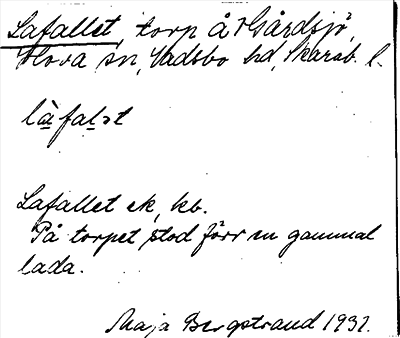 Lafallet, torp å Gårdsjö,
Hova sn, Vadsbo hd, Skarab. l.
làfalət
Lafallet ek, kb.
På torpet stod förr en gammal
lada.
Maja Bergstrand 1932.